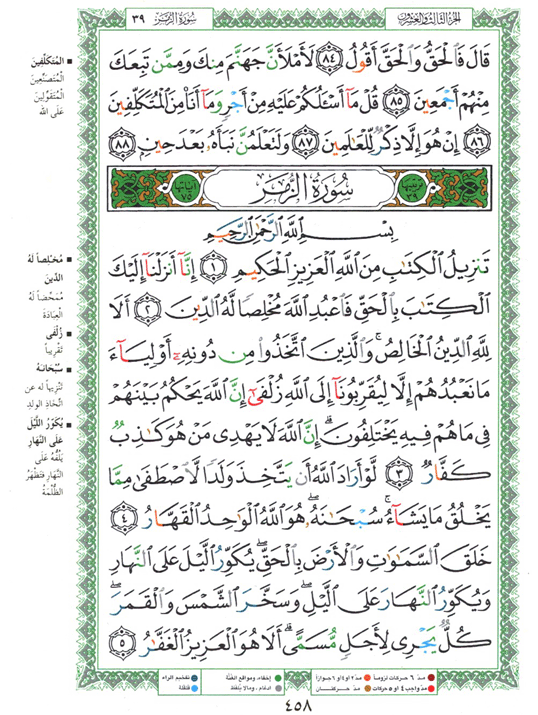 الجزء الثالث والعشرون
سورة الزمر ٣٩
قَالَ فَالْحَقُّ وَالْحَقَّ أَقُولُ ٨٤ لَأَمْلَأَنَّ جَهَنَّمَ مِنكَ وَمِمَّن تَبِعَكَ
مِنْهُمْ أَجْمَعِينَ ٨٥ قُلْ مَا أَسْـَٔلُكُمْ عَلَيْهِ مِنْ أَجْرٍ وَمَا أَنَا مِنَ الْمُتَكَلِّفِينَ
٨٦ إِنْ هُوَ إِلَّا ذِكْرٌ لِّلْعَالَمِينَ ٨٧ وَلَتَعْلَمُنَّ نَبَأَهُ بَعْدَ حِينٍ ٨٨
ترتيبها ٣٩ سُورَةُ الزُّمَرِ آياتها ٧٥
بِسْمِ اللَّهِ الرَّحْمَٰنِ الرَّحِيمِ
تَنزِيلُ الْكِتَابِ مِنَ اللَّهِ الْعَزِيزِ الْحَكِيمِ ١ إِنَّا أَنزَلْنَا إِلَيْكَ
الْكِتَابَ بِالْحَقِّ فَاعْبُدِ اللَّهَ مُخْلِصًا لَّهُ الدِّينَ ٢ أَلَا
لِلَّهِ الدِّينُ الْخَالِصُ ۚ وَالَّذِينَ اتَّخَذُوا مِن دُونِهِ أَوْلِيَاءَ
مَا نَعْبُدُهُمْ إِلَّا لِيُقَرِّبُونَا إِلَى اللَّهِ زُلْفَىٰ إِنَّ اللَّهَ يَحْكُمُ بَيْنَهُمْ
فِي مَا هُمْ فِيهِ يَخْتَلِفُونَ ۗ إِنَّ اللَّهَ لَا يَهْدِي مَنْ هُوَ كَاذِبٌ
كَفَّارٌ ٣ لَّوْ أَرَادَ اللَّهُ أَن يَتَّخِذَ وَلَدًا لَّاصْطَفَىٰ مِمَّا
يَخْلُقُ مَا يَشَاءُ ۚ سُبْحَانَهُ ۖ هُوَ اللَّهُ الْوَاحِدُ الْقَهَّارُ ٤
خَلَقَ السَّمَاوَاتِ وَالْأَرْضَ بِالْحَقِّ ۖ يُكَوِّرُ اللَّيْلَ عَلَى النَّهَارِ
وَيُكَوِّرُ النَّهَارَ عَلَى اللَّيْلِ ۖ وَسَخَّرَ الشَّمْسَ وَالْقَمَرَ ۖ
كُلٌّ يَجْرِي لِأَجَلٍ مُّسَمًّى ۗ أَلَا هُوَ الْعَزِيزُ الْغَفَّارُ ٥
■ المُتَكَلِّفِينَ
المُتَصَنِّعِينَ
المُتَقَوِّلِينَ
عَلَى اللهِ
■ مُخْلِصاً لَهُ
الدِّينَ
مُمَحِّضاً لَهُ
العِبَادَةَ
■ زُلْفَى
تَقْرِيباً
■ سُبْحَانَهُ
تَنْزِيهاً له عن
اتِّخَاذِ الولدِ
■ يُكَوِّرُ اللَّيْلَ
عَلَى النَّهَارِ
يَلُفُّهُ عَلَى
النَّهَارِ فَتَظْهَرُ
الظُّلْمَةُ
مدّ ٦ حركات لزوماً مدّ ٢ أو ٤ أو ٦ جوازاً إخفاء، ومواقع الغُنَّة تفخيم الراء
مدّ واجب ٤ أو ٥ حركات مدّ حركتان ادغام، وما لا يُلفَظ قلقلة
٤٥٨